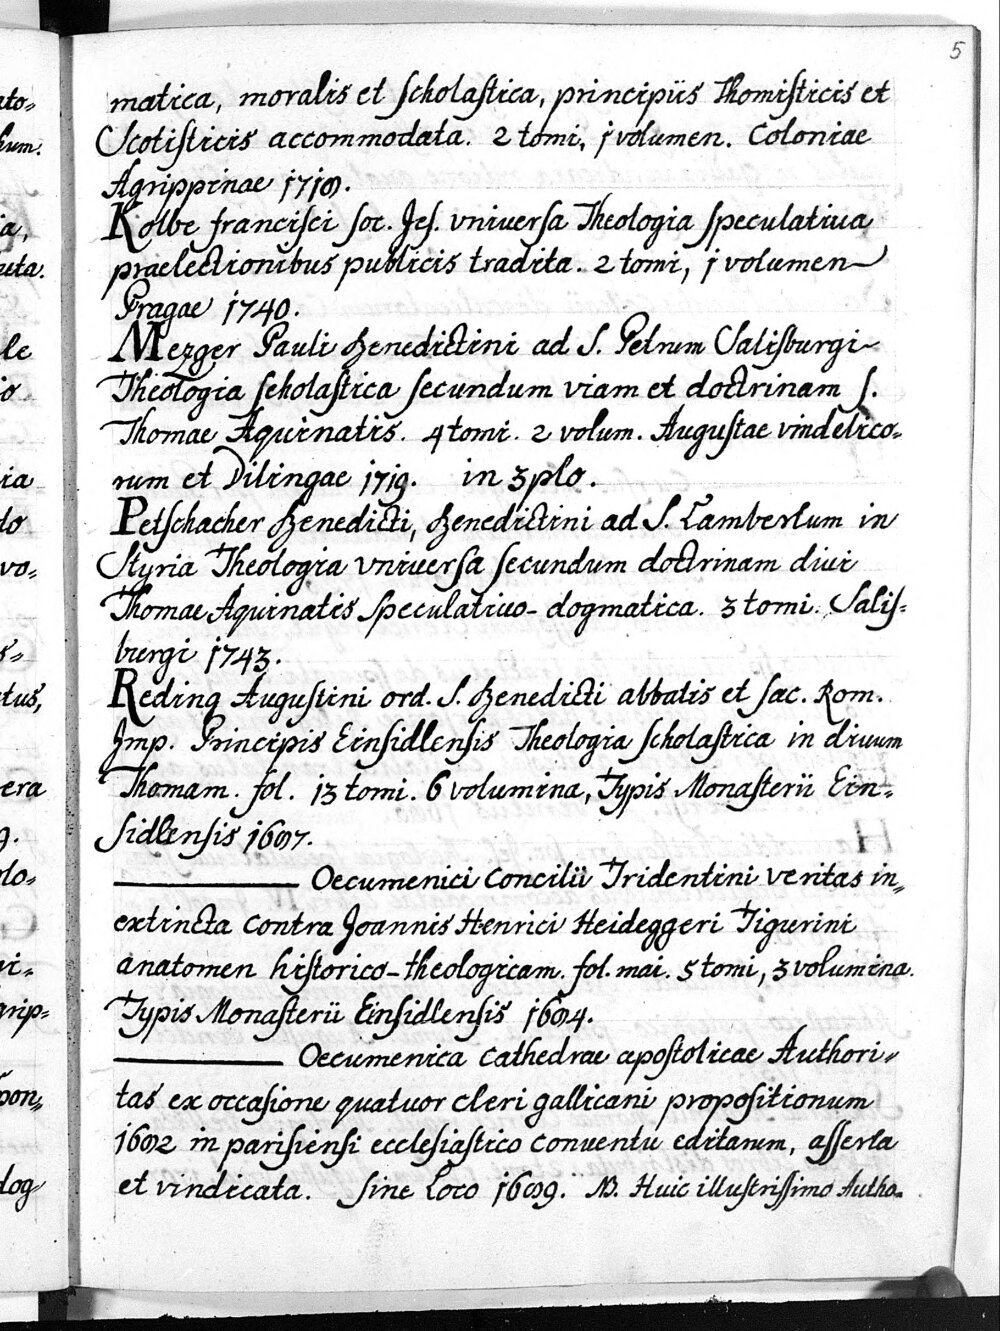 5
matica, moralis et scholastica, principiis Thomisticis et
Scotisticis accommodata. 2 tomi, 1 volumen. Coloniae
Agrippinae 1718.
Kolbe francisci soc. Jes. vniversa Theologia speculativa
praelectionibus publicis tradita. 2 tomi, 1 volumen
Pragae 1740.
Mezger Pauli Benedictini ad S. Petrum Salisburgi
Theologia scholastica secundum viam et doctrinam S.
Thomae Aquinatis. 4 tomi. 2 volum. Augustae vindelico-
rum et Dilingae 1719. in 3plo.
Petschacher Benedicti, Benedictini ad S. Lambertum in
Styria Theologia vniversa secundum doctrinam divi
Thomae Aquinatis speculativo-dogmatica. 3 tomi. Salis-
burgi 1743.
Reding Augustini ord. S. Benedicti abbatis et sac. Rom.
Imp. Principis Einsidlensis Theologia scholastica in divum
Thomam. fol. 13 tomi. 6 volumina, Typis Monasterii Ein-
sidlensis 1687.
——— Oecumenici Concilii Tridentini veritas in-
extincta contra Joannis Henrici Heideggeri Tigurini
anatomen historico-theologicam. fol. mai. 5 tomi, 3 volumina.
Typis Monasterii Einsidlensis 1684.
——— Oecumenica Cathedrae apostolicae Authori-
tas ex occasione quatuor cleri gallicani propositionum
1682 in parisiensi ecclesiastico conventu editarum, asserta
et vindicata. Sine Loco 1689. NB. Huic illustrissimo Autho-